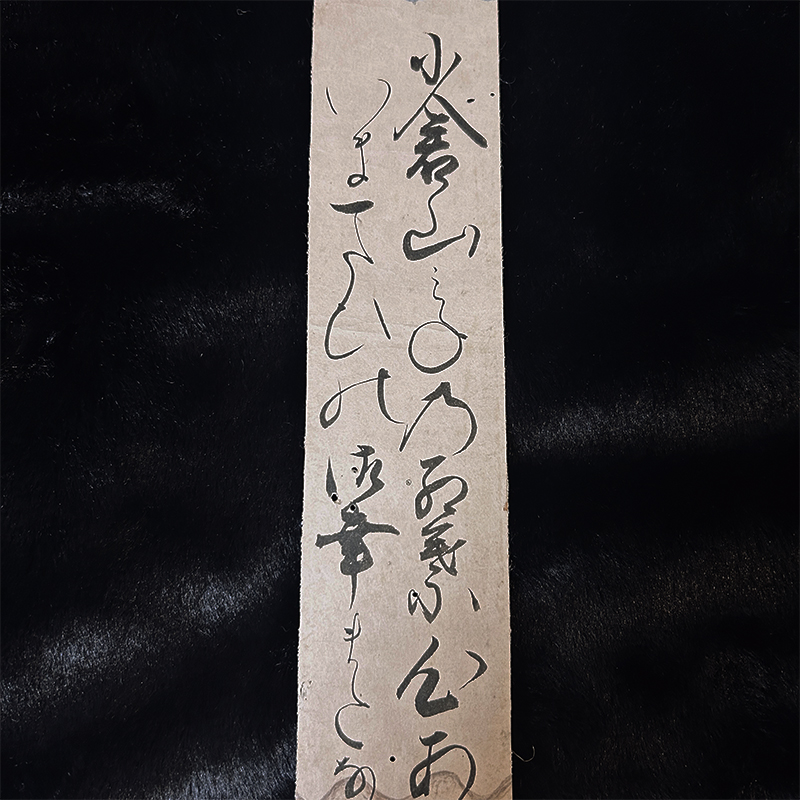 小倉山みねの紅葉心あ
いまひとたひの御幸またな